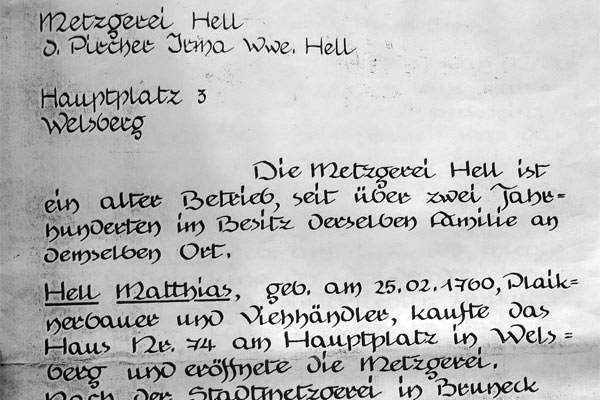 Metzgerei Hell
d. Pircher Irma Wwe. Hell
Hauptplatz 3
Welsberg
Die Metzgerei Hell ist
ein alter Betrieb, seit über zwei Jahr=
hunderten im Besitz derselben Familie an
demselben Ort.
Hell Matthias, geb. am 25.02.1760, Plaik=
nerbauer und Viehhändler, kaufte das
Haus Nr. 74 am Hauptplatz in Wels=
berg und eröffnete die Metzgerei.
Nach der Stadtmetzgerei in Bruneck